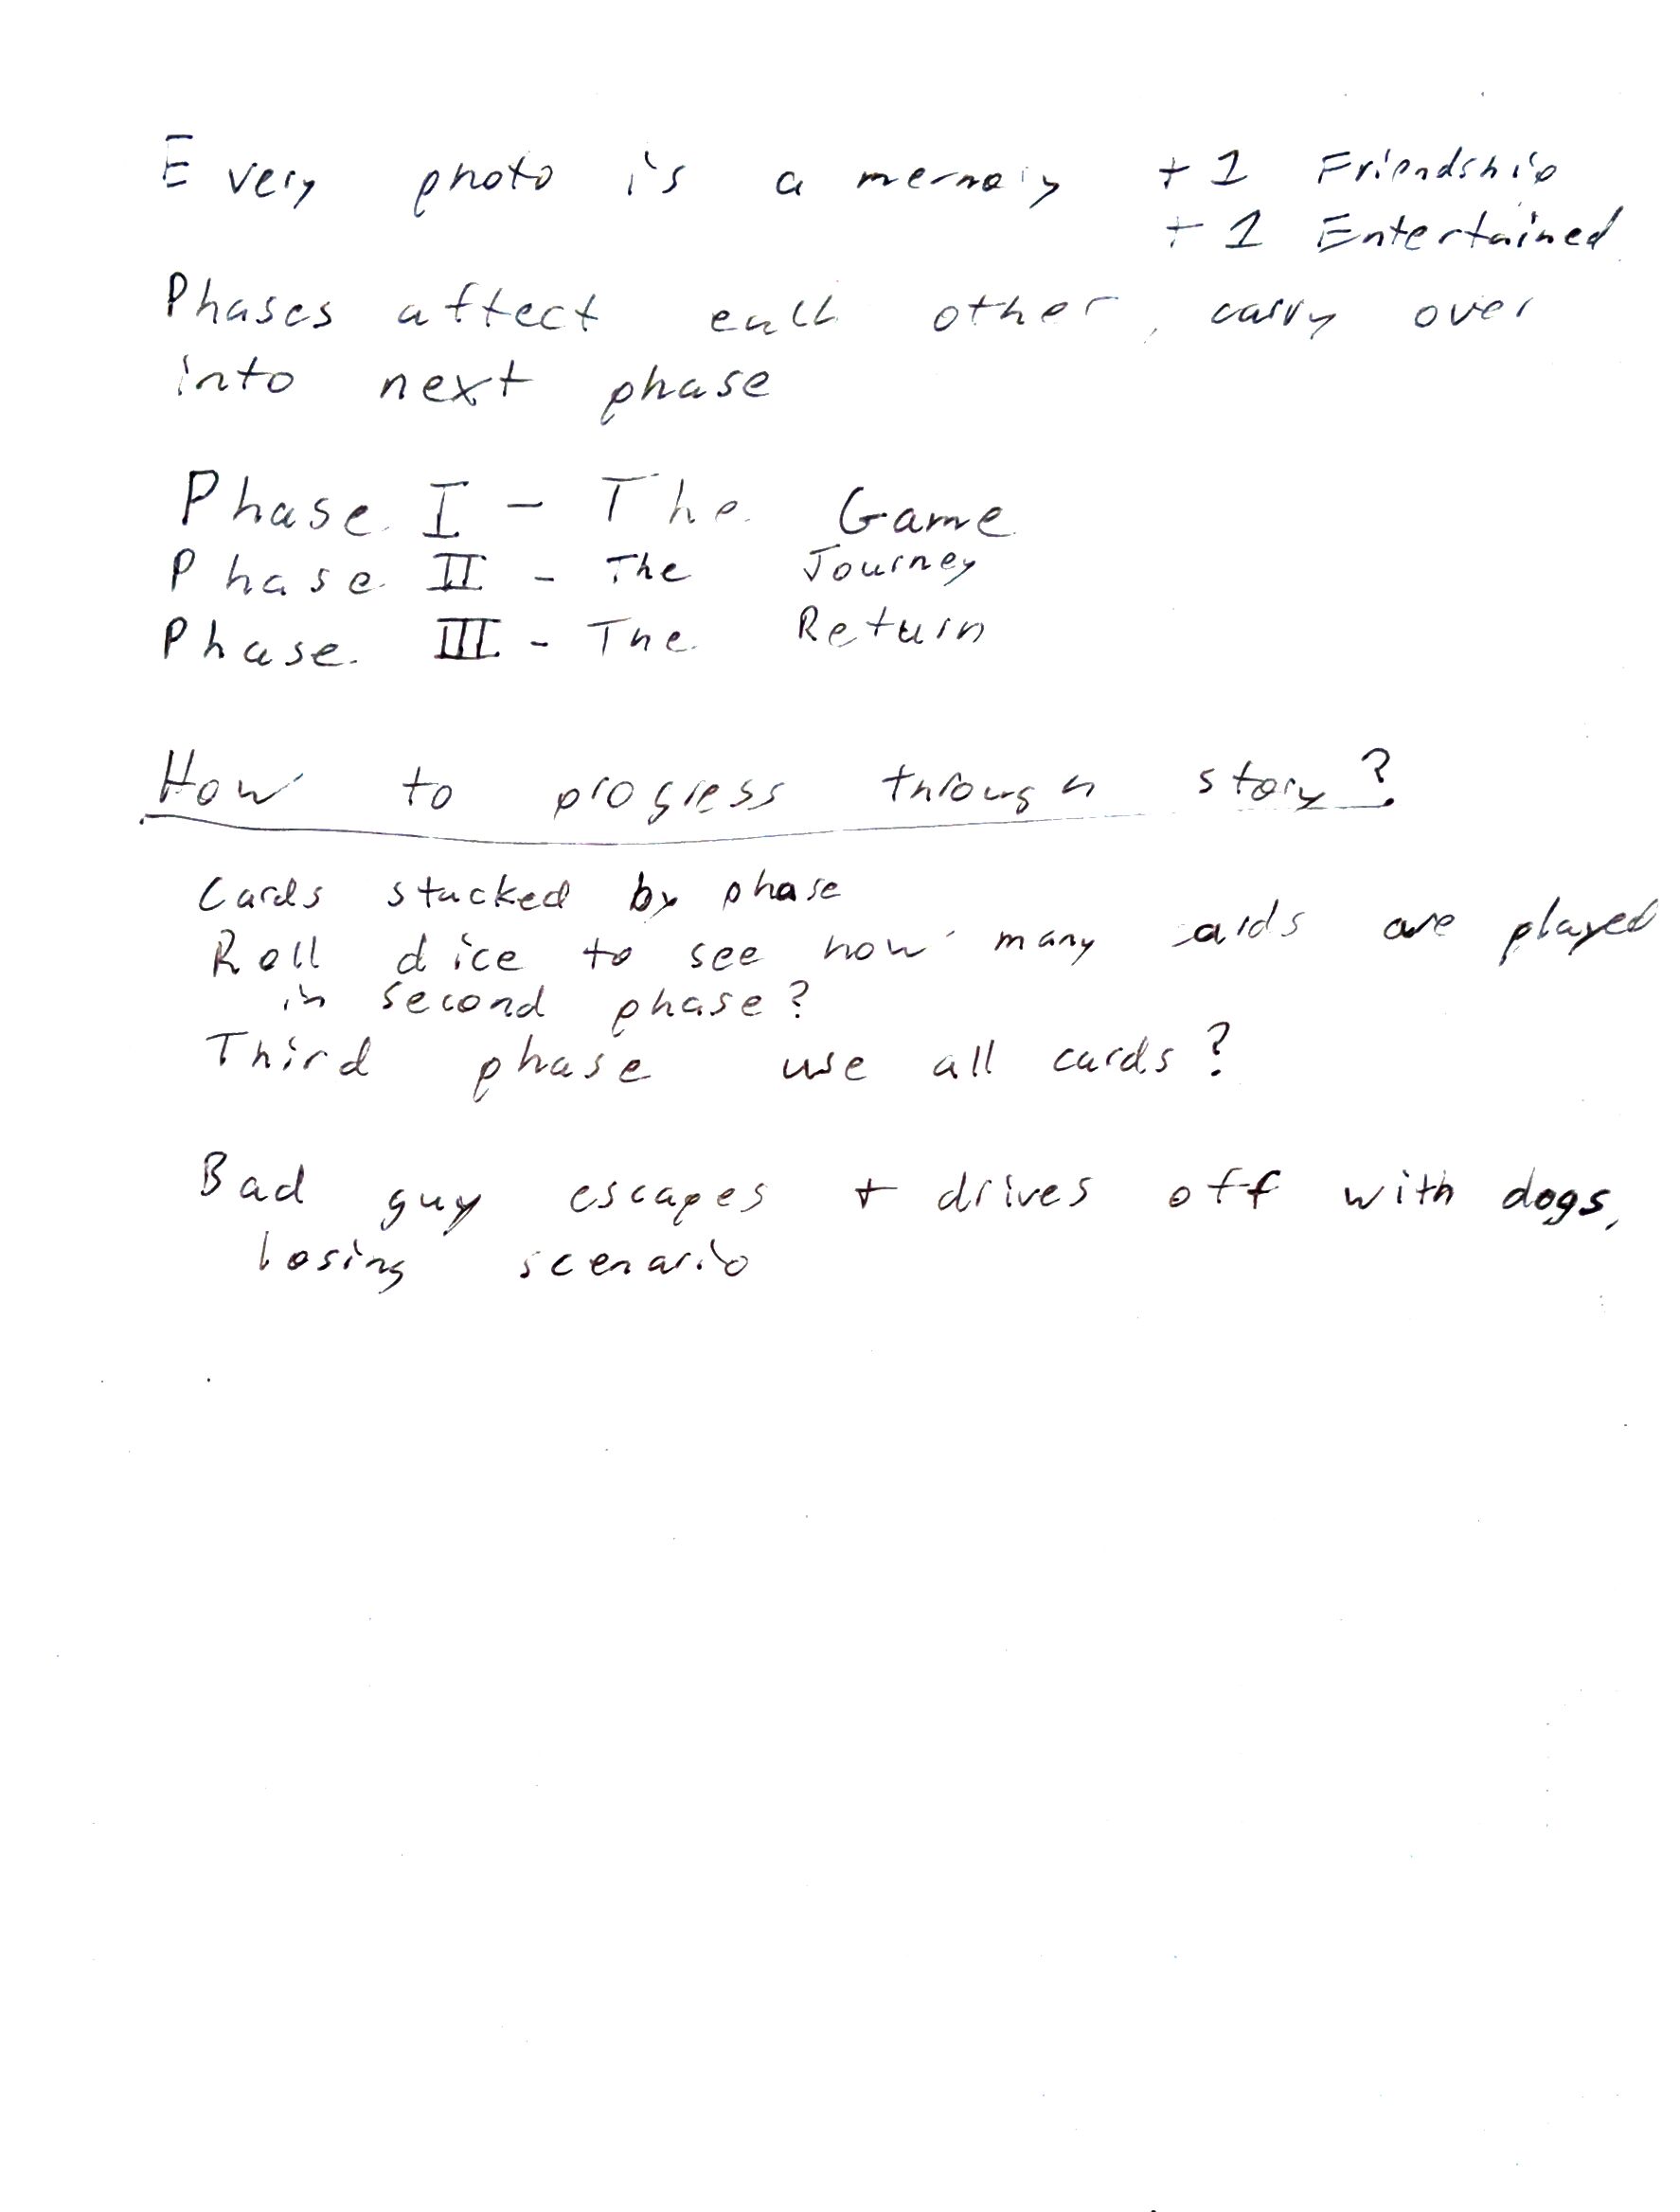 Every photo is a memory +1 Friendship
+1 Entertained
Phases affect each other, carry over
into next phase
Phase I - The Game
Phase II - The Journey
Phase III - The Return
How to progress through story?
Cards stacked by phase
Roll dice to see how many cards are played
in second phase?
Third phase use all cards?
Bad guy escapes + drives off with dogs,
losing scenario